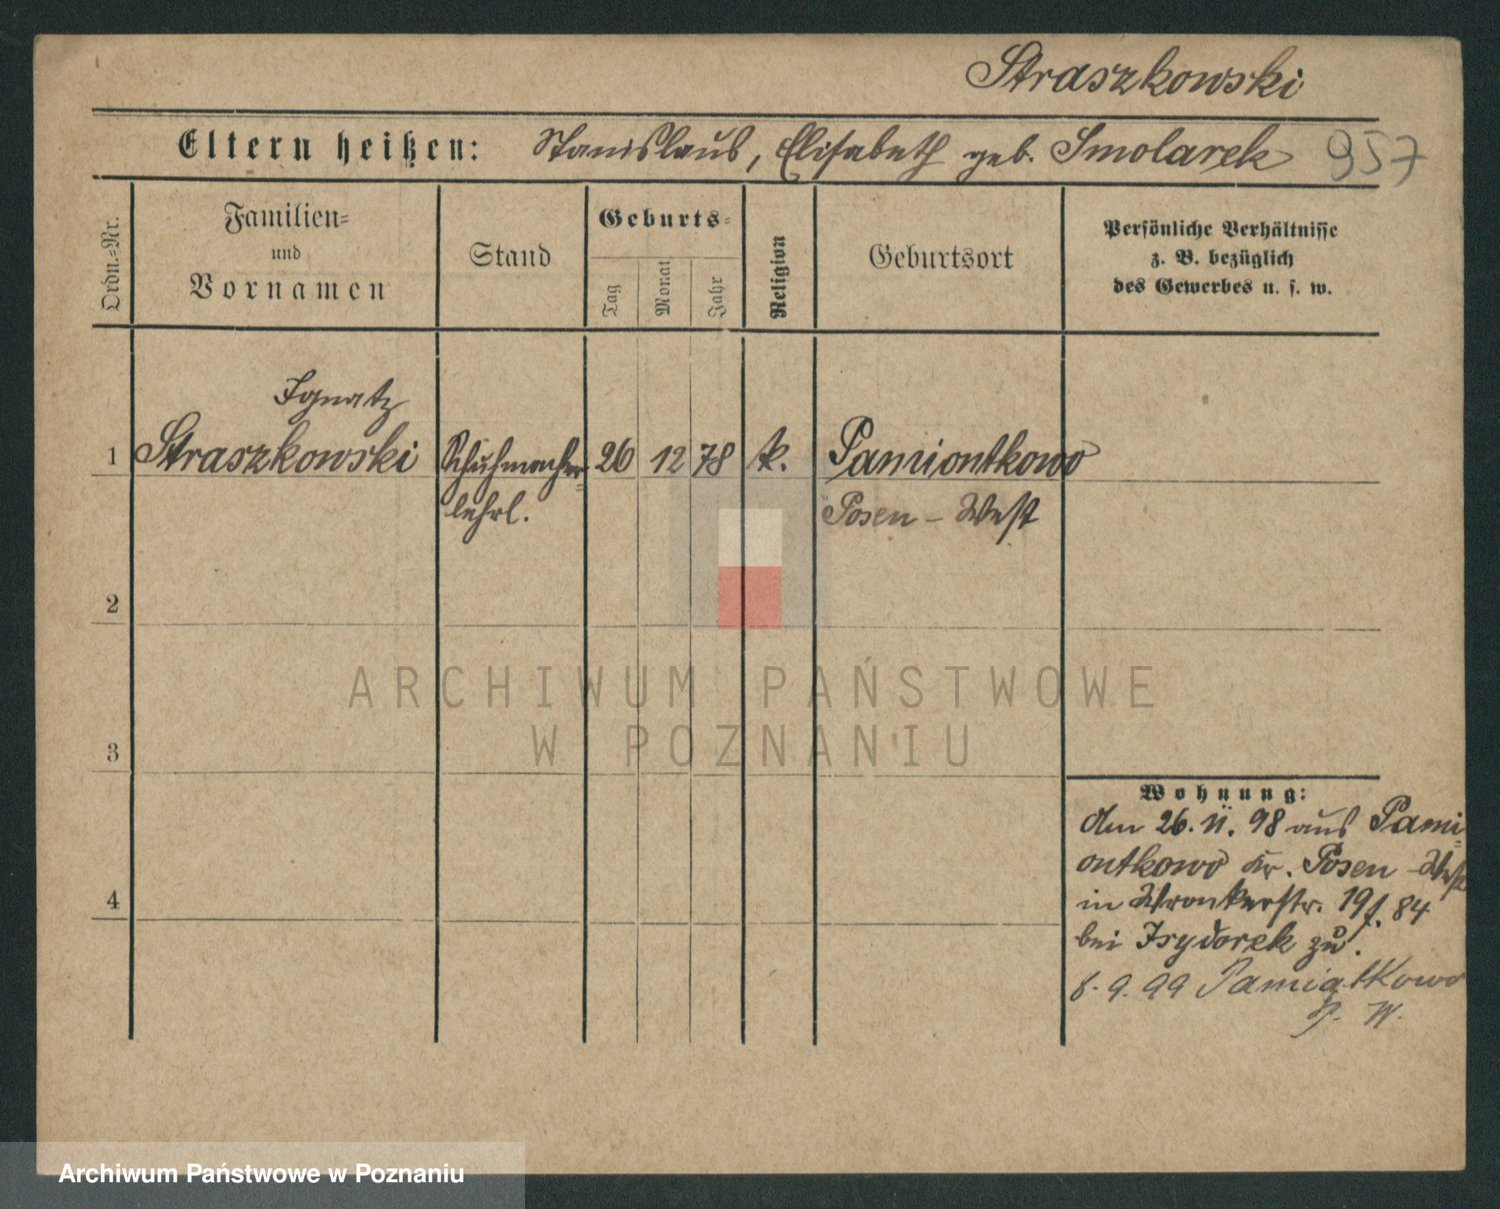 Straszkowski
Eltern heißen: Stanislaus, Elisabeth geb. Smolarek 957
Ordn.=Nr.
Familien=
und
Vornamen
Stand
Geburts=
Tag
Monat
Jahr
Religion
Geburtsort
Persönliche Verhältnisse
z. B. bezüglich
des Gewerbes u. s. w.
Ignatz
1 Straszkowski Schuhmacher= 26 12 78 k. Pamiontkowo
lehrl. Posen - West
2
ARCHIWUM PAŃSTWOWE
W POZNANIU
3
Wohnung:
Am 26. 11. 98 aus Pami=
ontkowo Kr. Posen - West
in Wronkerstr. 19 f. 84
bei Isydorek zu.
8. 9. 99 Pamiątkowo
P. W.
4
Archiwum Państwowe w Poznaniu